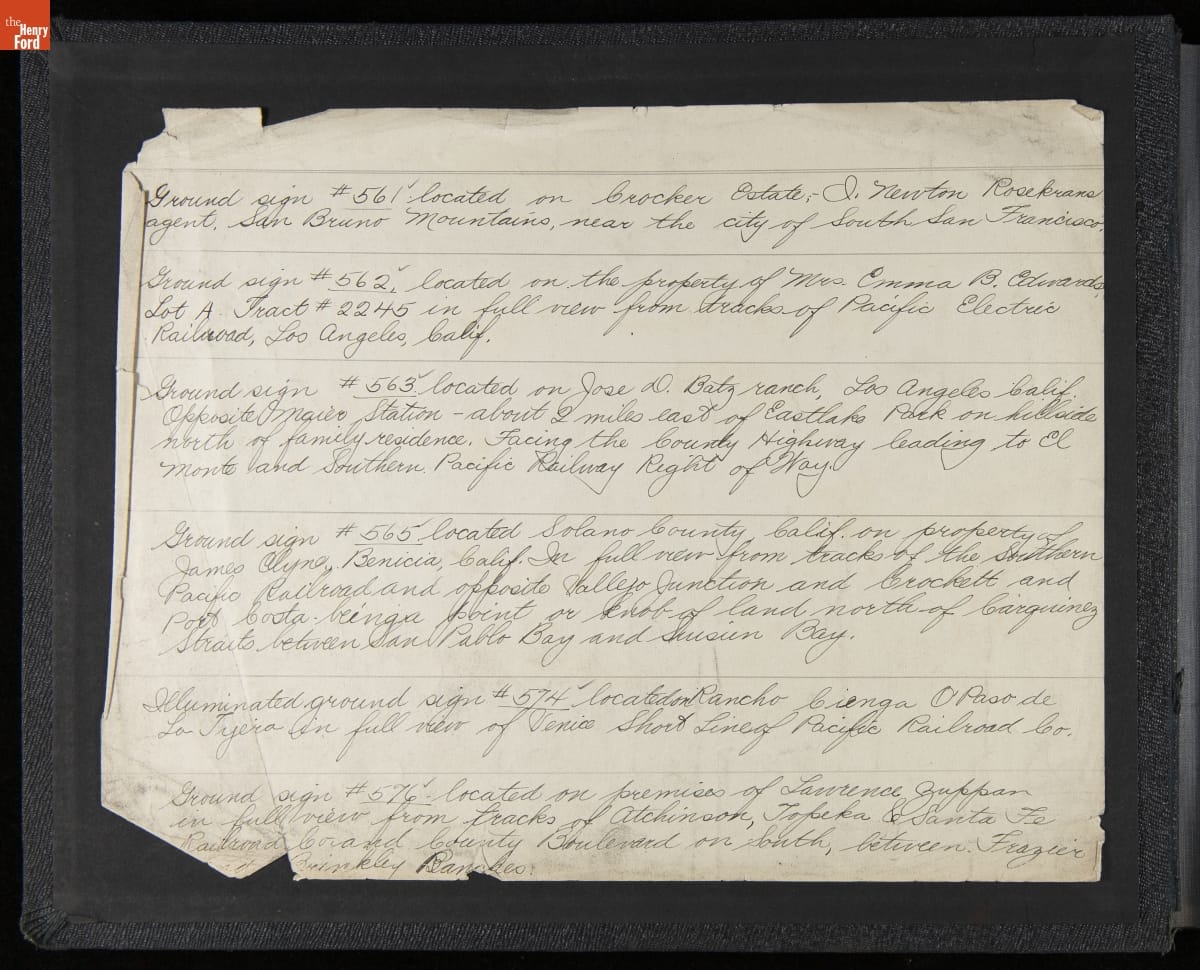 the
Henry
Ford
Ground sign # 561 located on Crocker Estate;- J. Newton Rosekrans
agent. San Bruno Mountains, near the city of South San Francisco.
Ground sign # 562, located on the property of Mrs. Emma B. Edwards,
Lot A. Tract # 2245 in full view from tracks of Pacific Electric
Railroad, Los Angeles, Calif.
Ground sign # 563 located on Jose D. Batz ranch, Los Angeles Calif.
Opposite Maier Station - about 2 miles east of Eastlake Park on hillside
north of family residence. Facing the County Highway leading to El
Monte and Southern Pacific Railway Right of Way.
Ground sign # 565 located Solano County Calif. on property of
James Clyne, Benicia, Calif. In full view from tracks of the Southern
Pacific Railroad and opposite Vallejo Junction and Crockett and
Port Costa - being a point or knob of land north of Carquinez
Straits between San Pablo Bay and Suisun Bay.
Illuminated ground sign # 574 located on Rancho Cienga O Paso de
La Tijera in full view of Venice Short Line of Pacific Railroad Co.
Ground sign # 576 - located on premises of Lawrence Zuppan
in full view from tracks of Atchinson, Topeka & Santa Fe
Railroad Co and County Boulevard on South, between Frazier
Brinkley Ranches.